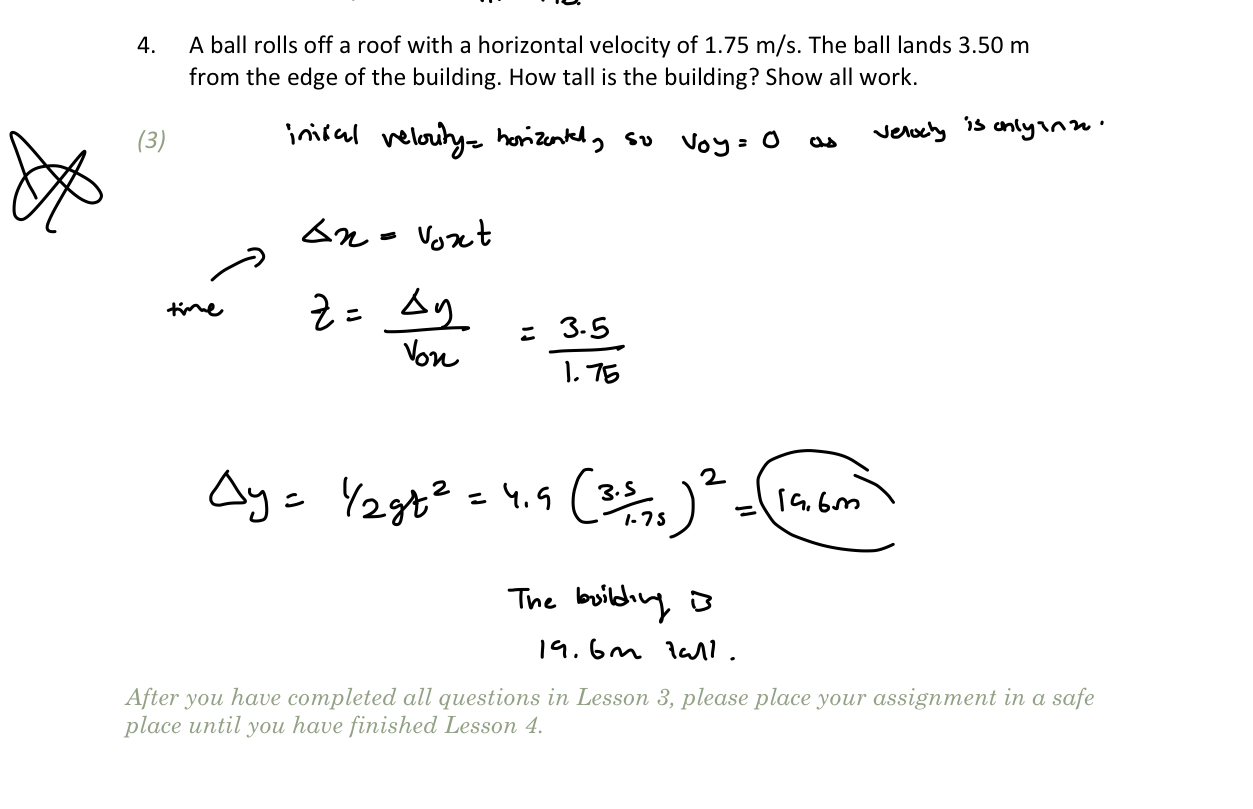 4. A ball rolls off a roof with a horizontal velocity of 1.75 m/s. The ball lands 3.50 m
from the edge of the building. How tall is the building? Show all work.
(3) initial velocity = horizontal, so v₀y = 0 as velocity is only in x.
Δx = v₀xt
time t = Δy/v₀x = 3.5/1.75
Δy = 1/2gt² = 4.9 (3.5/1.75)² = 19.6m
The building is
19.6m tall.
After you have completed all questions in Lesson 3, please place your assignment in a safe
place until you have finished Lesson 4.